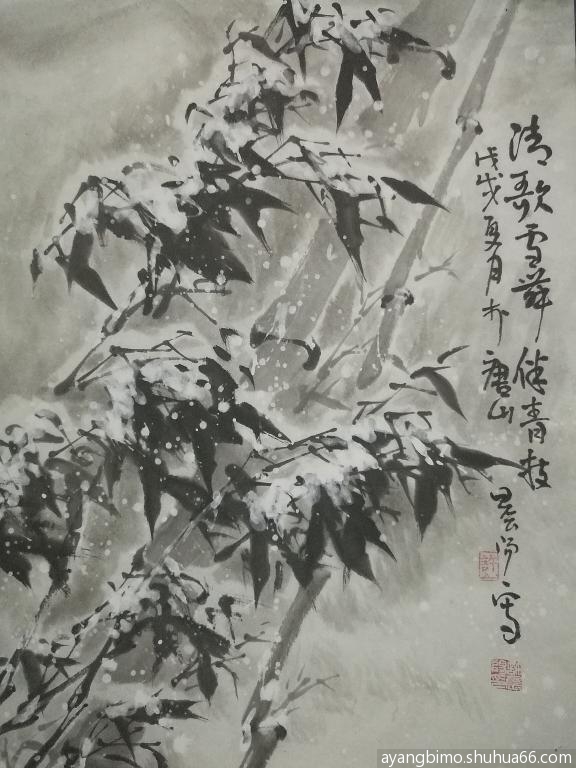 清歌雪舞伴青枝
戊戌夏月于唐山
晨 写
ayangbimo.shuhua66.com